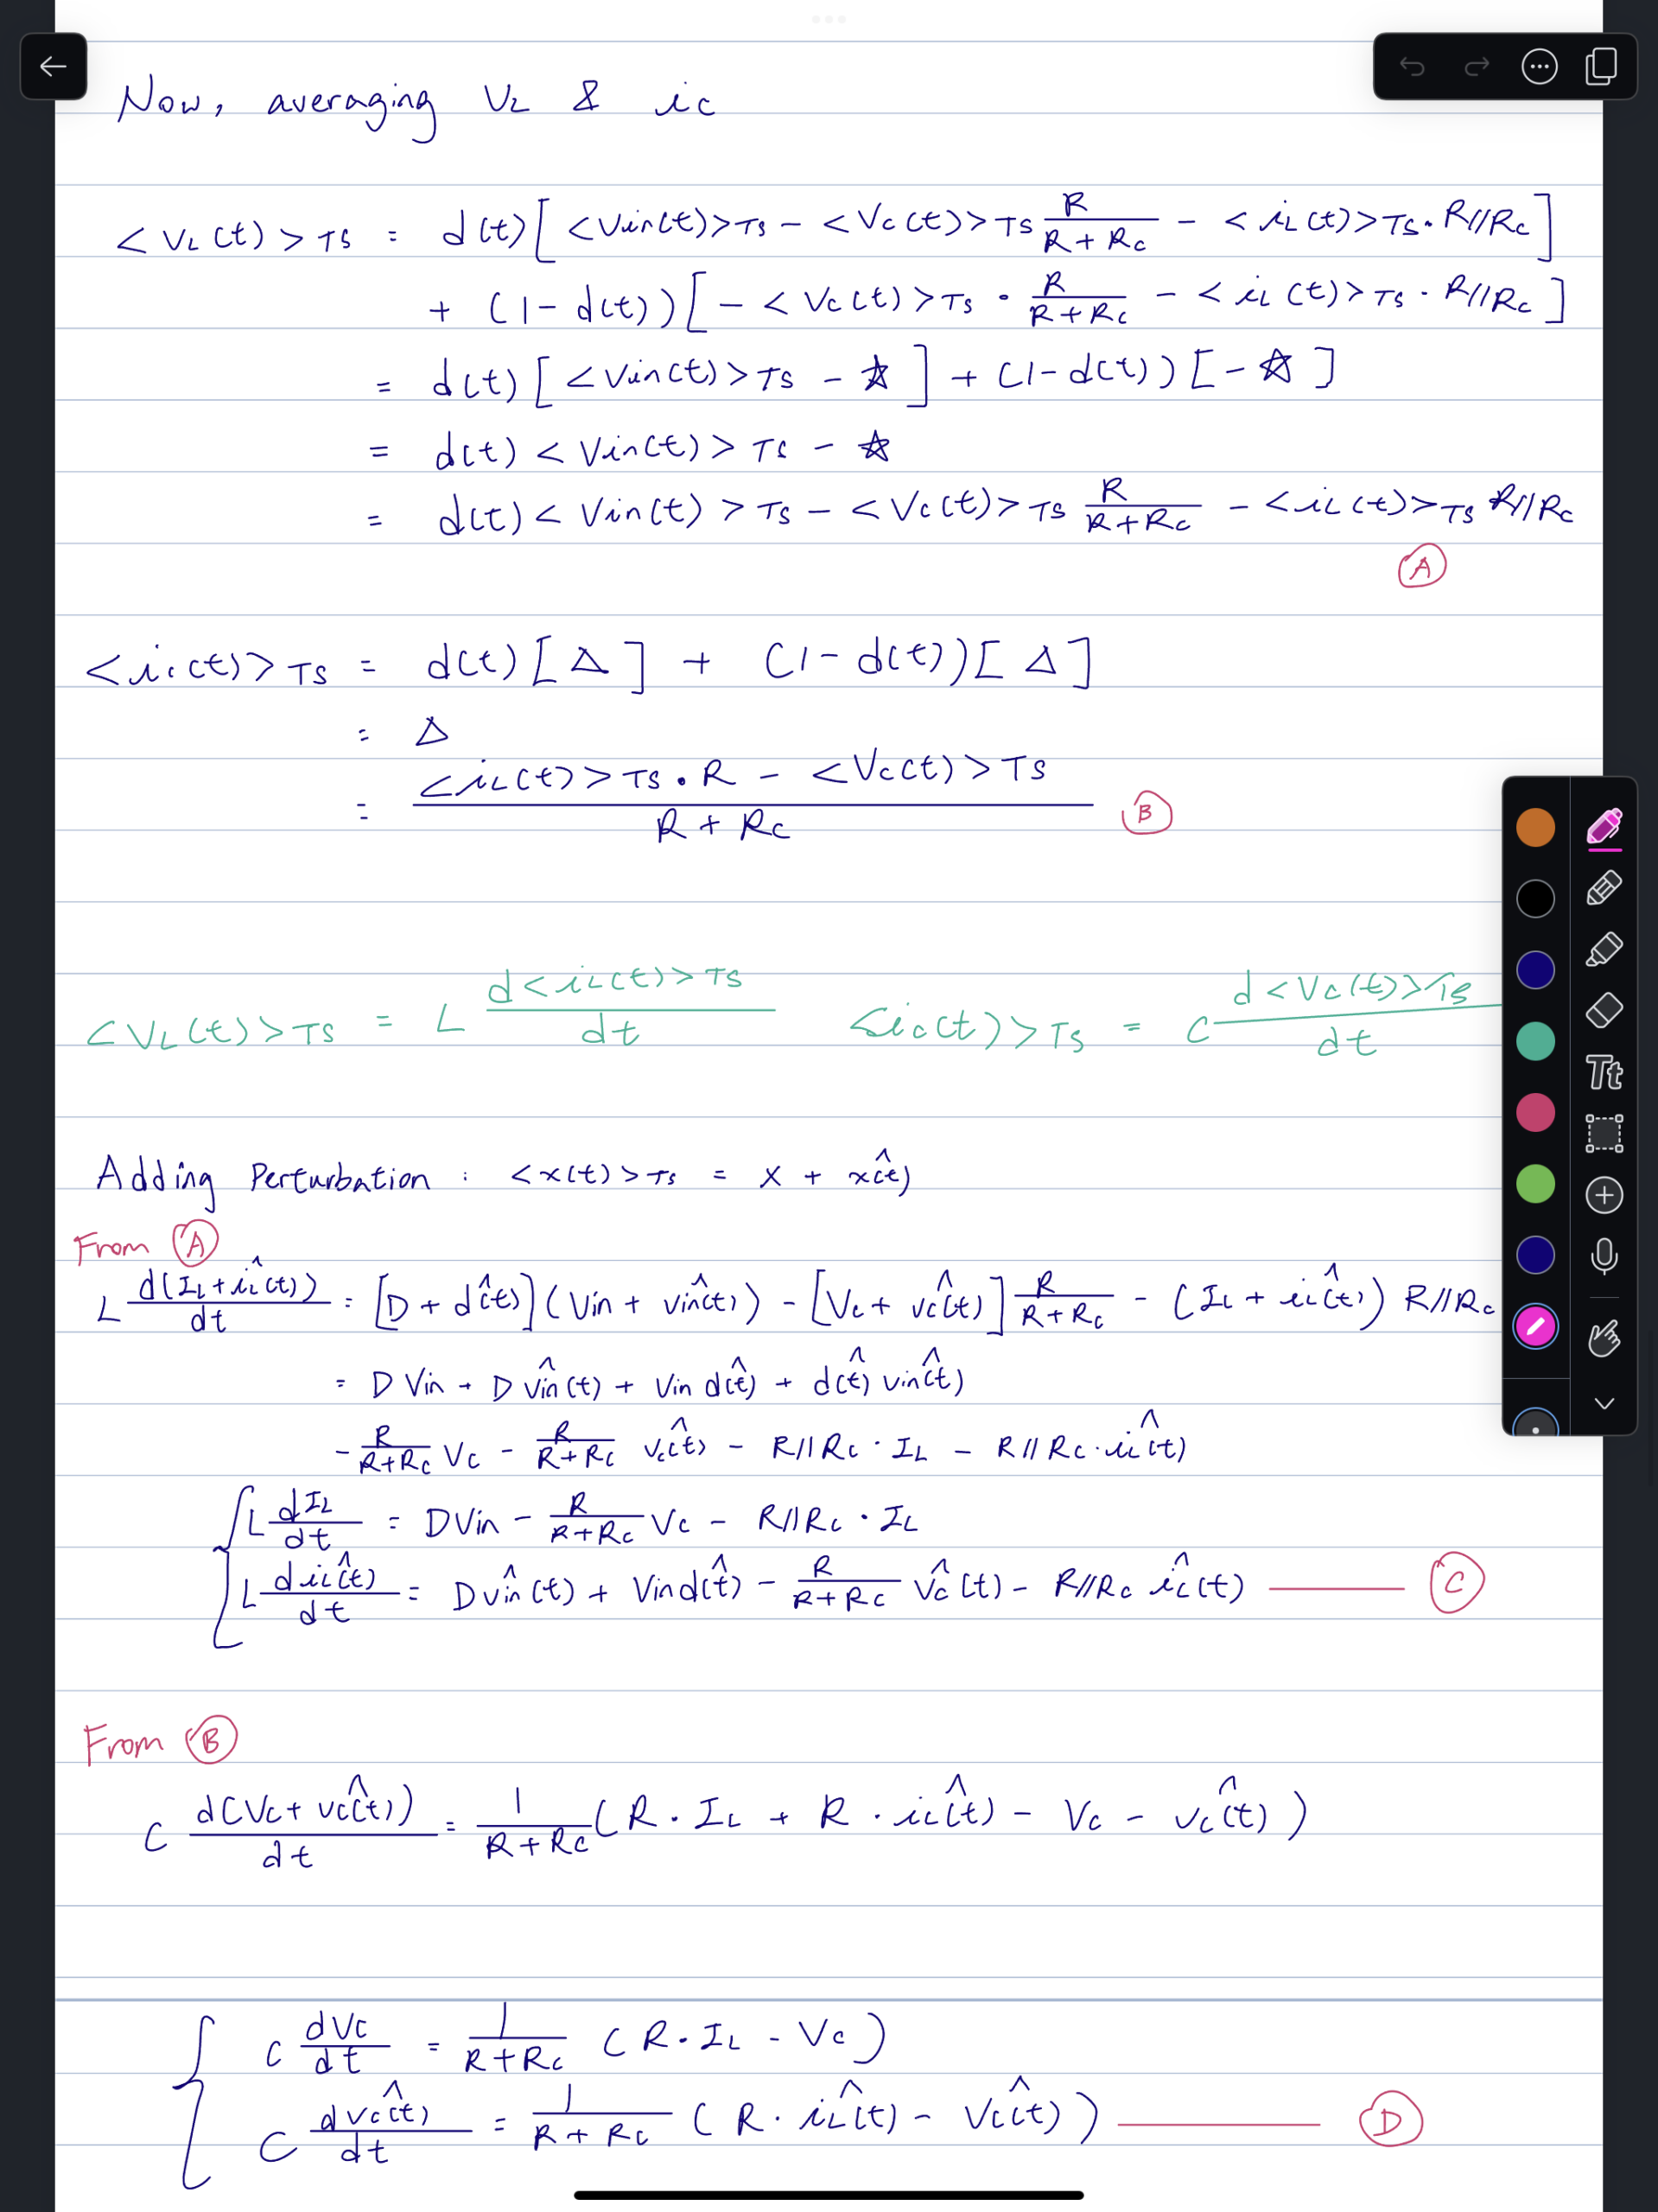 Now, averaging VL & ic
<VL(t)>TS = d(t)[<Vin(t)>TS - <Vc(t)>TS R/(R+Rc) - <iL(t)>TS · R//Rc]
+ (1-d(t))[- <Vc(t)>TS · R/(R+Rc) - <iL(t)>TS · R//Rc]
= d(t)[<Vin(t)>TS - ☆] + (1-d(t))[-☆]
= d(t)<Vin(t)>TS - ☆
= d(t)<Vin(t)>TS - <Vc(t)>TS R/(R+Rc) - <iL(t)>TS R//Rc
Ⓐ
<ic(t)>TS = d(t)[△] + (1-d(t))[△]
= △
= (<iL(t)>TS · R - <Vc(t)>TS)/(R+Rc) Ⓑ
<VL(t)>TS = L d<iL(t)>TS/dt <ic(t)>TS = C d<Vc(t)>TS/dt
Adding Perturbation : <x(t)>TS = X + x̂(t)
From Ⓐ
L d(IL+îL(t))/dt = [D + d̂(t)](Vin + v̂in(t)) - [Vc + v̂c(t)] R/(R+Rc) - (IL + îL(t)) R//Rc
= D Vin + D v̂in(t) + Vin d̂(t) + d̂(t) v̂in(t)
- R/(R+Rc) Vc - R/(R+Rc) v̂c(t) - R//Rc · IL - R//Rc · îL(t)
L dIL/dt = DVin - R/(R+Rc) Vc - R//Rc · IL
L dîL(t)/dt = D v̂in(t) + Vin d̂(t) - R/(R+Rc) v̂c(t) - R//Rc îL(t) Ⓒ
From Ⓑ
C d(Vc + v̂c(t))/dt = 1/(R+Rc) (R · IL + R · îL(t) - Vc - v̂c(t))
C dVc/dt = 1/(R+Rc) (R · IL - Vc)
C dv̂c(t)/dt = 1/(R+Rc) (R · îL(t) - v̂c(t)) Ⓓ
Tt